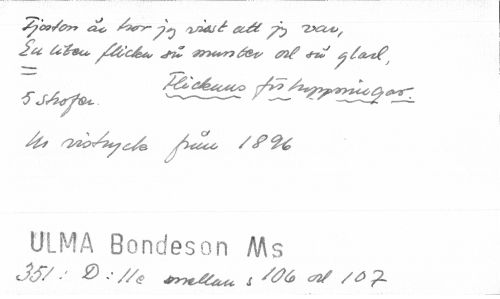 Fjorton år tror jag visst att jag var,
En liten flicka så munter och så glad,
=
Flickans förhoppningar.
5 strofer.
Ur vistryck från 1896
ULMA Bondeson Ms
351: D: 11c mellan s 106 och 107